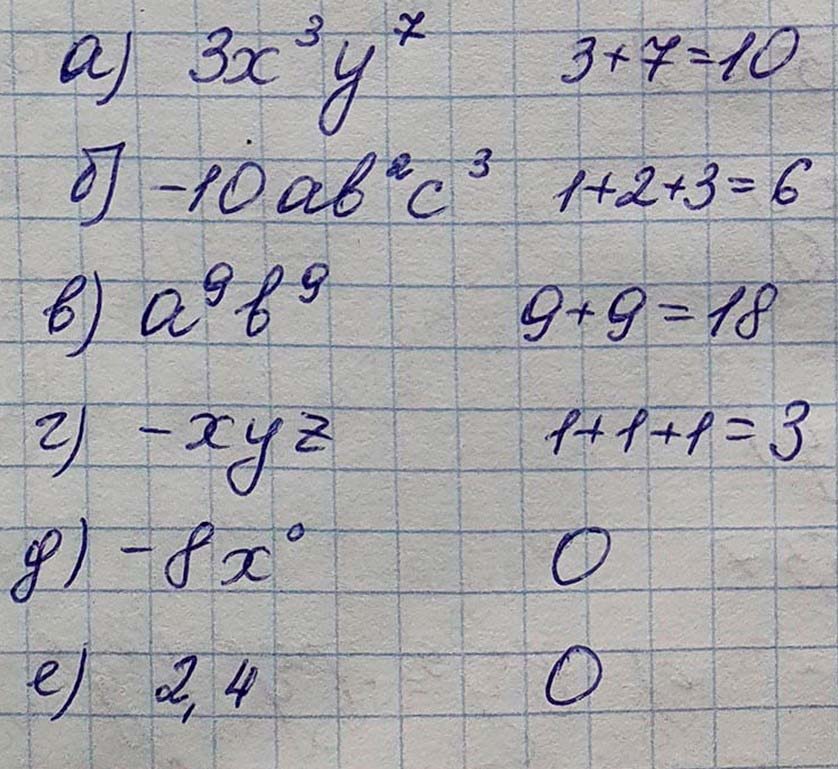 а) 3x³y⁷ 3+7=10
б) -10ab²c³ 1+2+3=6
в) a⁹b⁹ 9+9=18
г) -xyz 1+1+1=3
д) -8x⁰ 0
е) 2,4 0